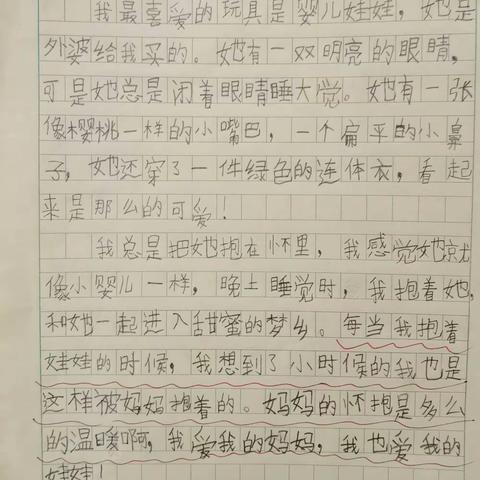 我最喜爱的玩具是婴儿娃娃，她是
外婆给我买的。她有一双明亮的眼睛，
可是她总是闭着眼睛睡大觉。她有一张
像樱桃一样的小嘴巴，一个扁平的小鼻
子，她还穿了一件绿色的连体衣，看起
来是那么的可爱！
我总是把她抱在怀里，我感觉她就
像小婴儿一样，晚上睡觉时，我抱着她，
和她一起进入甜蜜的梦乡。每当我抱着
娃娃的时候，我想到了小时候的我也是
这样被妈妈抱着的。妈妈的怀抱是多么
的温暖啊，我爱我的妈妈，我也爱我的
娃娃！